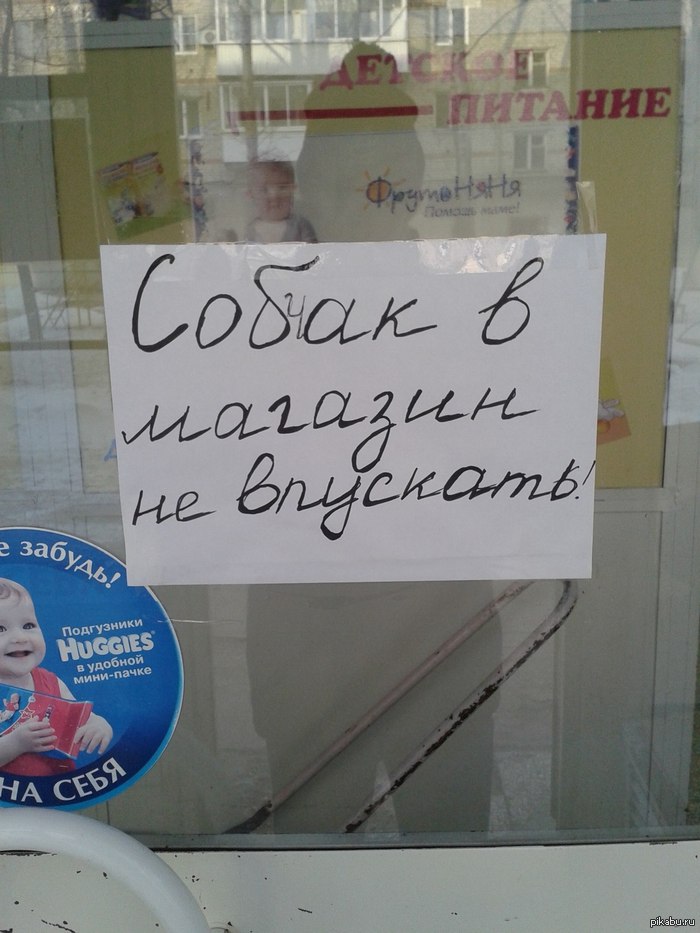 ДЕТСКОЕ
ПИТАНИЕ
ФрутоНяНя
Помощь маме!
Собчак в
магазин
не впускать!
е забудь!
Подгузники
HUGGIES
в удобной
мини-пачке
НА СЕБЯ
pikabu.ru